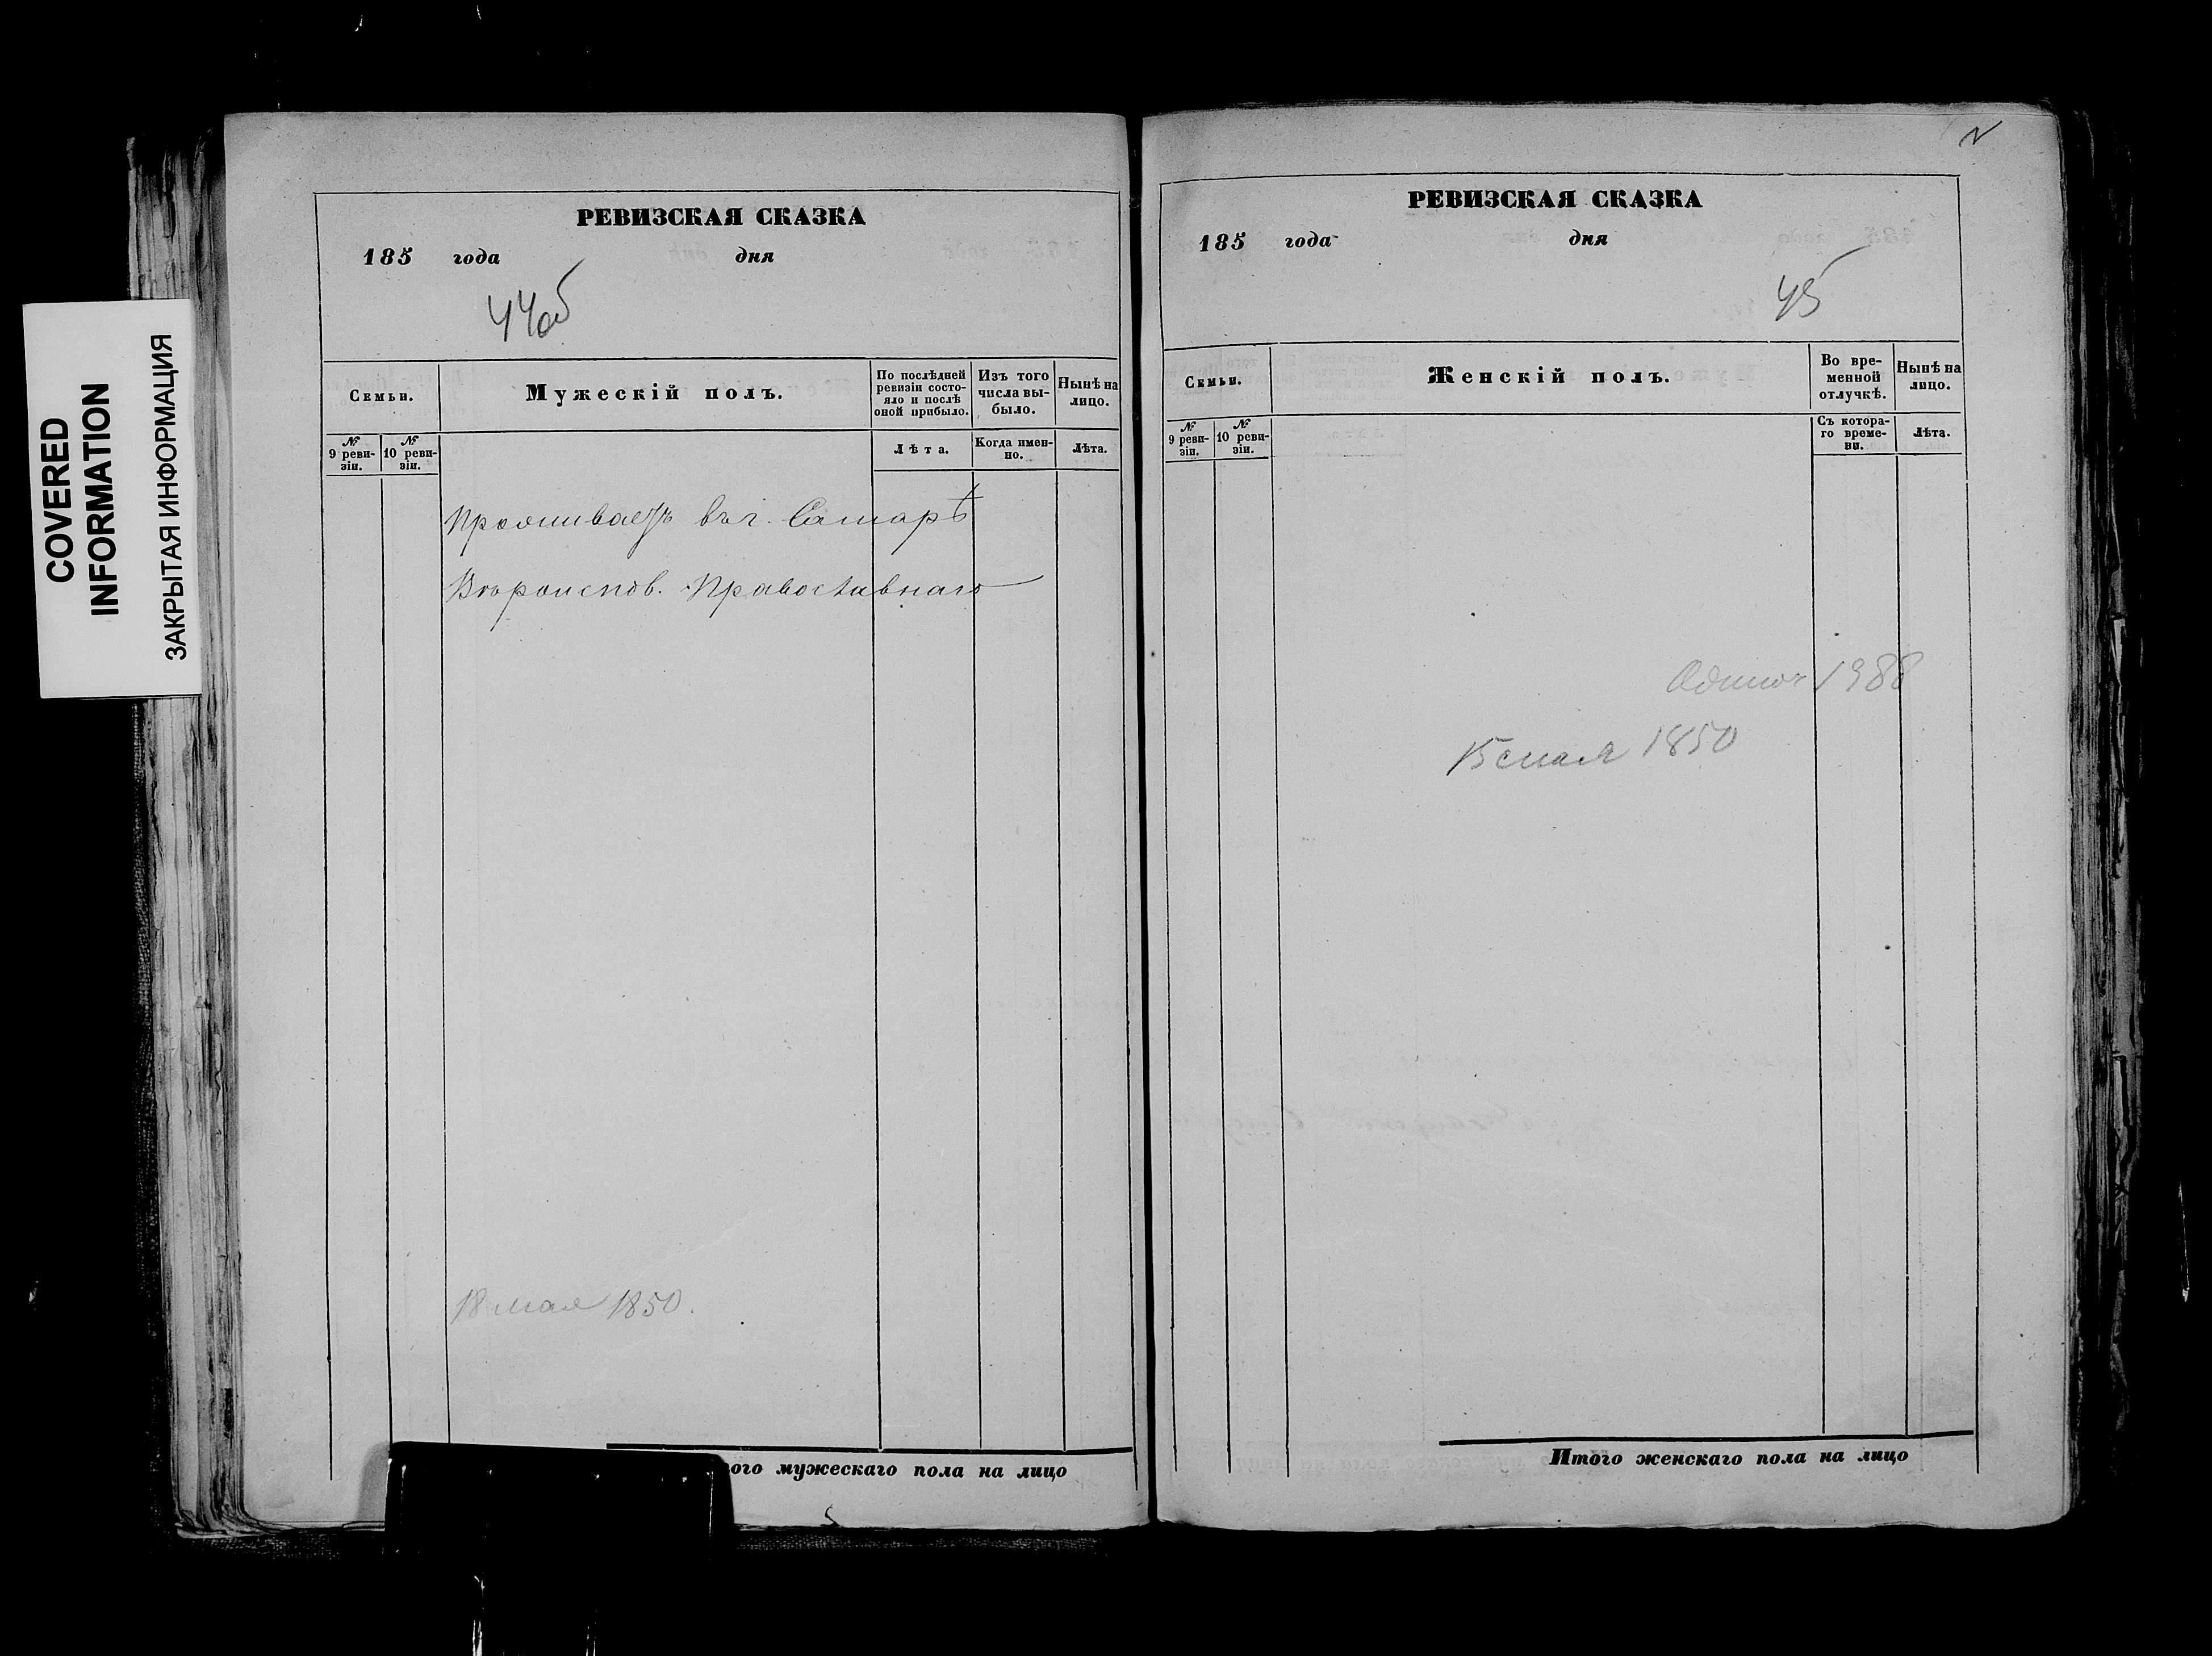 COVERED
INFORMATION
ЗАКРЫТАЯ ИНФОРМАЦИЯ
РЕВИЗСКАЯ СКАЗКА
185 года дня
44об
Семьи.
Мужескій полъ.
По послѣдней
ревизіи состо-
яло и послѣ
оной прибыло.
Изъ того
числа вы-
было.
Нынѣ на
лицо.
№
9 реви-
зіи.
№
10 реви-
зіи.
Лѣта.
Когда имен-
но.
Лѣта.
Проживаетъ въ г. Самарѣ
Вѣроиспов. Православнаго
18 мая 1850.
ого мужескаго пола на лицо
РЕВИЗСКАЯ СКАЗКА
185 года дня
45
Семьи.
Женскій полъ.
Во вре-
менной
отлучкѣ.
Нынѣ на
лицо.
№
9 реви-
зіи.
№
10 реви-
зіи.
Съ котора-
го време-
ни.
Лѣта.
1850
Итого женскаго пола на лицо